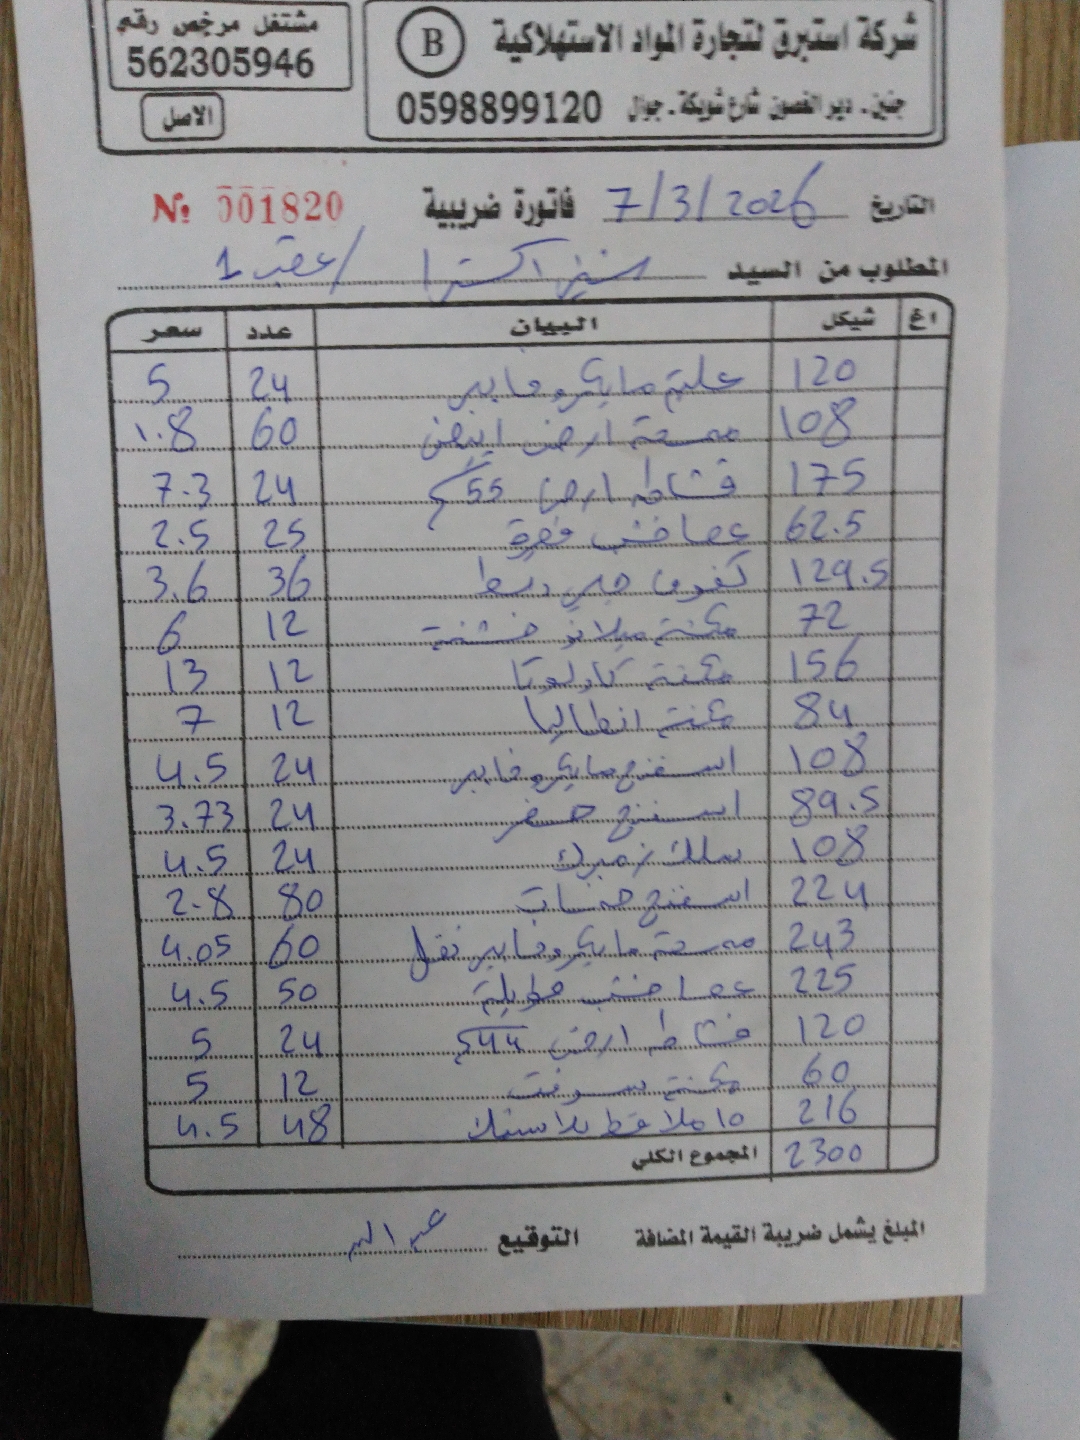 شركة استبرق لتجارة المواد الاستهلاكية
B
جنين. دير الغصون شارع شويكة. جوال 0598899120
مشتغل مرخص رقم
562305946
الاصل
التاريخ 7/3/2026 فاتورة ضريبية № 001820
المطلوب من السيد سنير اكسترا / عقبة 1
اغ شيكل البيان عدد سعر
120 علبة مايكروفايبر 24 5
108 ممسحة ارض ابيض 60 1.8
175 قشاطه ارض 55 24 7.3
62.5 عصا خشب 25 2.5
129.5 كفوف جلي وسط 36 3.6
72 مكنسة ميلانو خشنة 12 6
156 مكنسة كارلوتا 12 13
84 مكنسة انطاليا 12 7
108 اسفنج مايكروفايبر 24 4.5
89.5 اسفنج حفر 24 3.73
108 سلك زمبرك 24 4.5
224 اسفنج حبات 80 2.8
243 ممسحة مايكروفايبر ثقيل 60 4.05
225 عصا خشب طويلة 50 4.5
120 قشاطه ارض 44 24 5
60 مكنسة سوفت 12 5
216 ملاقط بلاستك 48 4.5
المجموع الكلي 2300
المبلغ يشمل ضريبة القيمة المضافة التوقيع